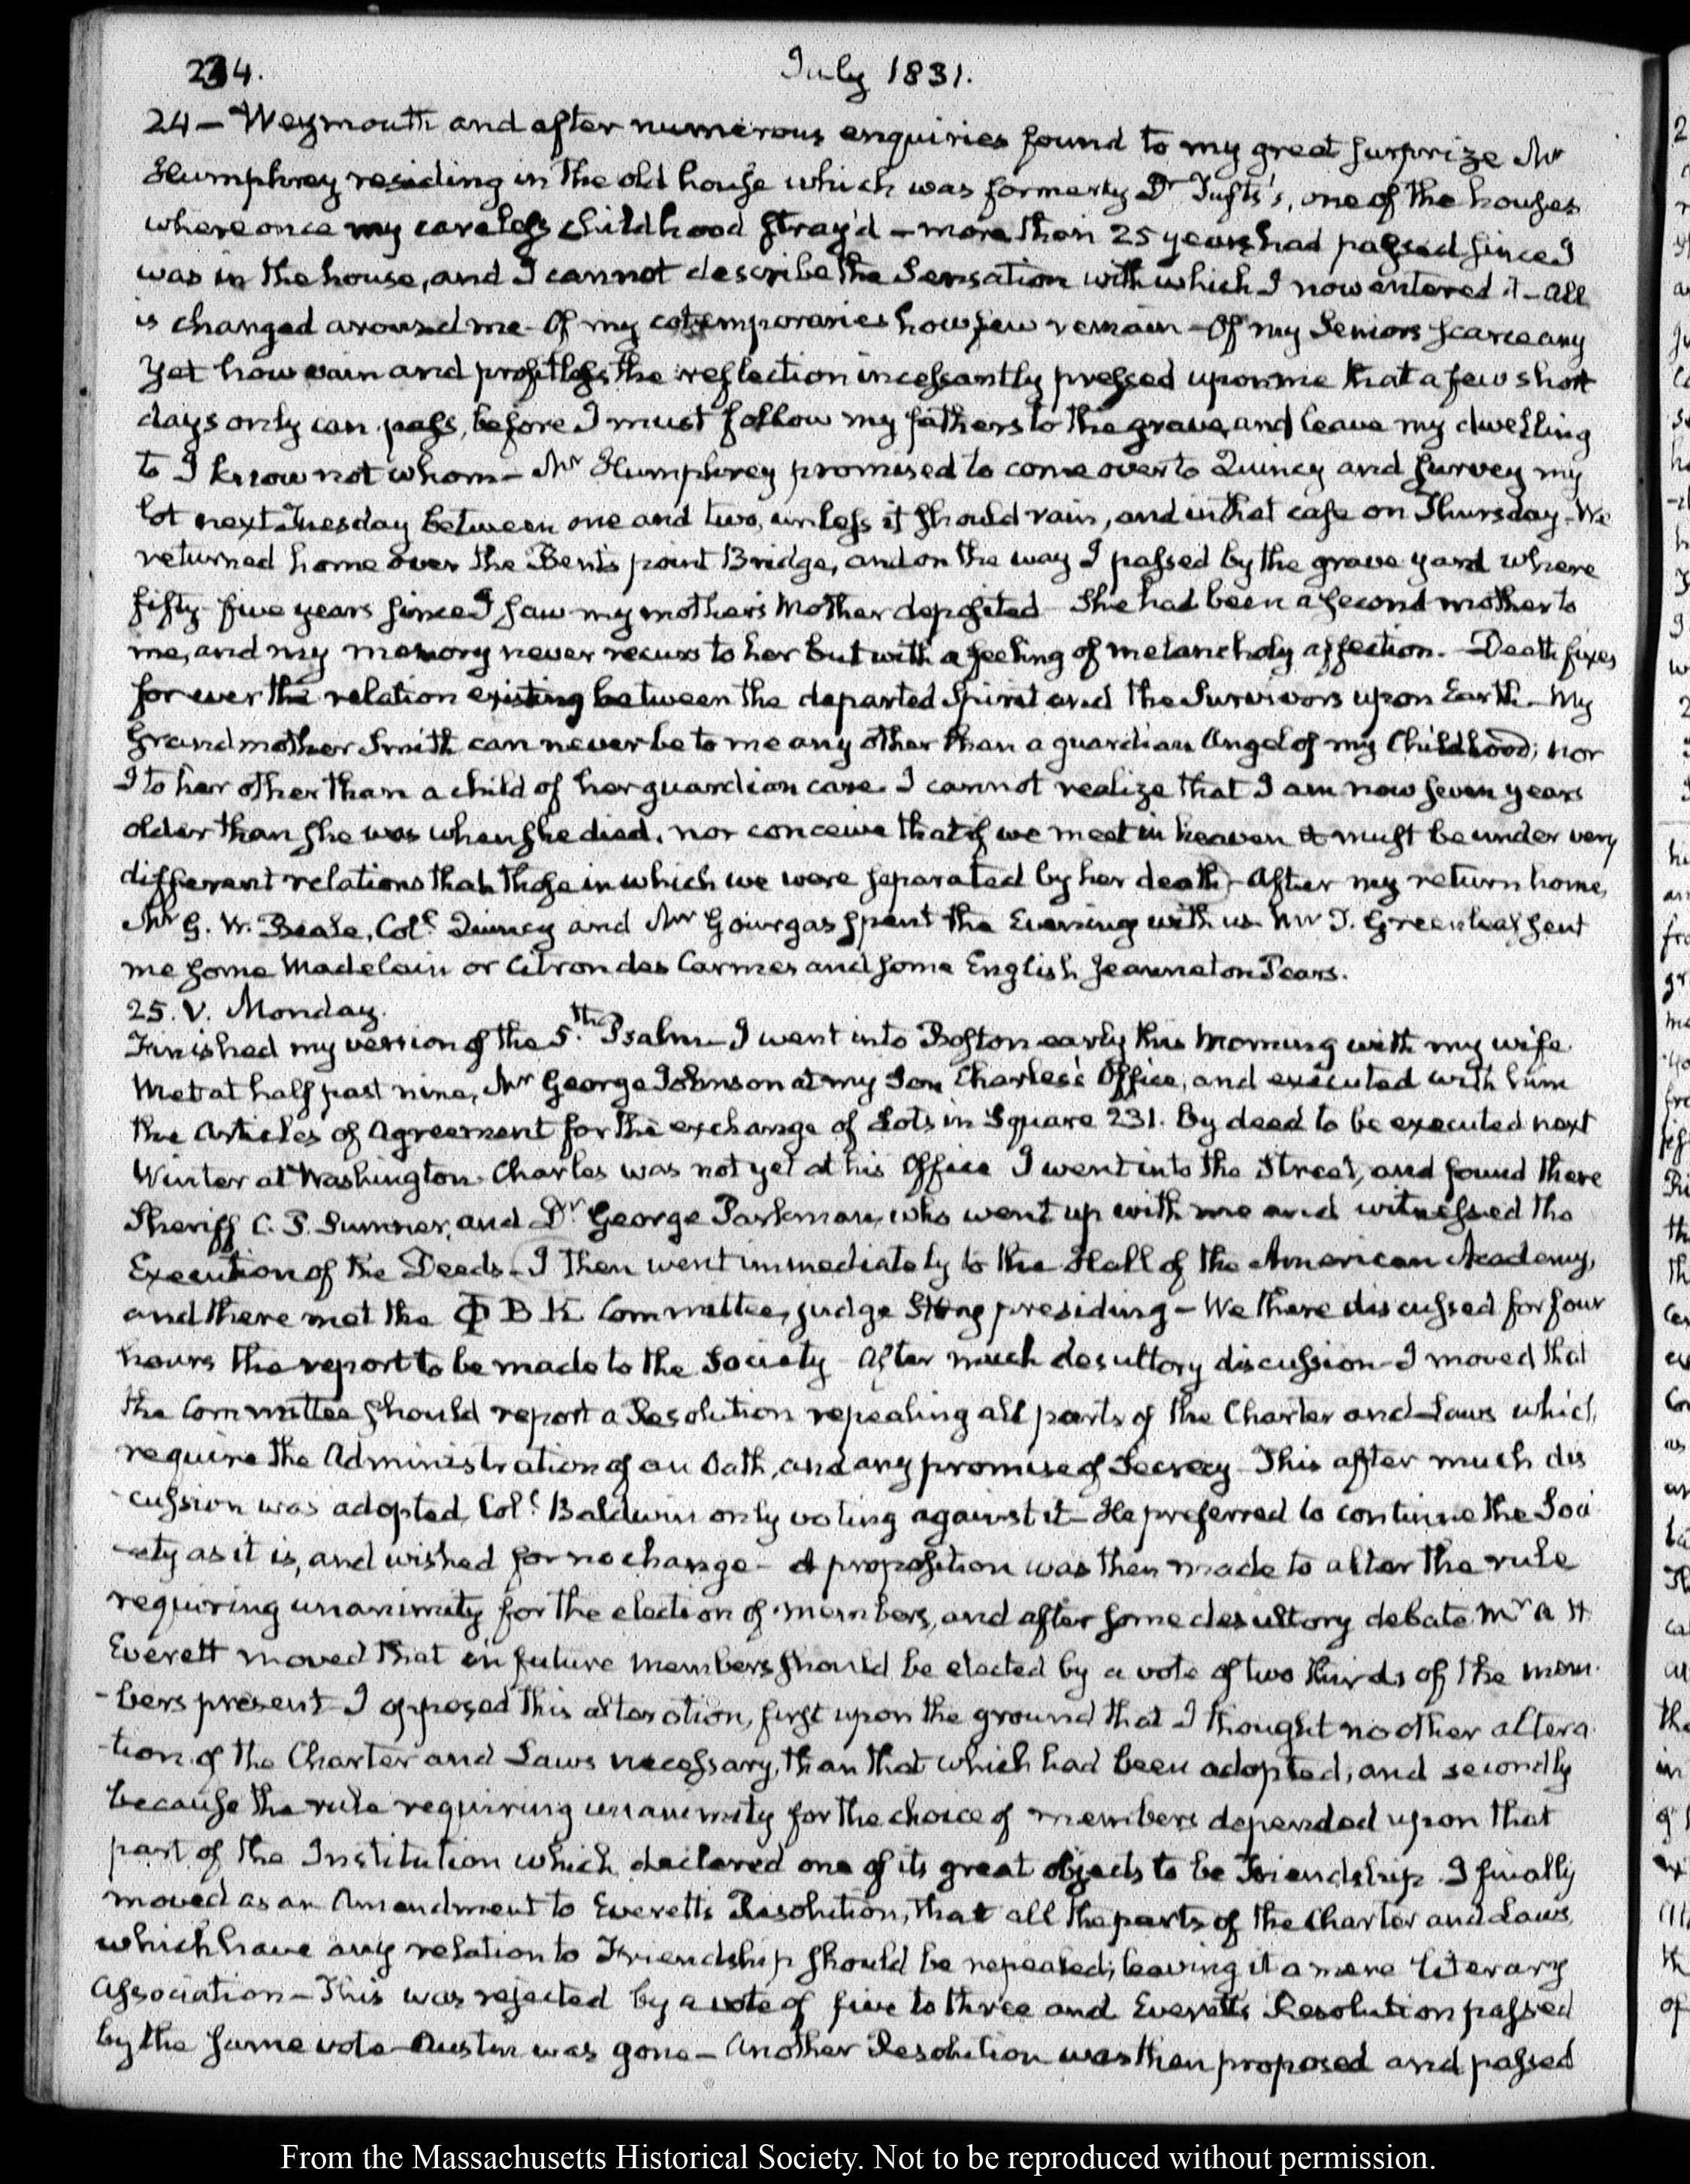 234.
July 1831.
24 — Weymouth and after numerous enquiries found to my great surprize Mr
Humphrey residing in the old house which was formerly Dr Tufts's, one of the houses
where once my careless childhood stray'd — more than 25 years had passed since I
was in the house, and I cannot describe the Sensation with which I now entered it — all
is changed around me — Of my cotemporaries how few remain — Of my Seniors scarce any
Yet how vain and profitless the reflection incessantly pressed upon me that a few short
days only can pass, before I must follow my fathers to the grave, and leave my dwelling
to I know not whom — Mr Humphrey promised to come over to Quincy and survey my
lot next Tuesday between one and two, unless it should rain, and in that case on Thursday — We
returned home over the Bent's point Bridge, and on the way I passed by the grave yard where
fifty five years since I saw my mother's Mother deposited — She had been a second mother to
me, and my memory never recurs to her but with a feeling of melancholy affection. — Death fixes
for ever the relation existing between the departed Spirit and the Survivors upon Earth — My
Grandmother Smith can never be to me any other than a guardian Angel of my Childhood; nor
I to her other than a child of her guardian care. I cannot realize that I am now seven years
older than she was when she died. nor conceive that if we meet in heaven it must be under very
different relations than those in which we were separated by her death — After my return home,
Mr G. W. Beale, Coll Quincy and Mr Gourgas spent the Evening with us Mr T. Greenleaf sent
me some Madelain or Citron des Carmes and some English Jeanneton Pears.
25. V. Monday.
Finished my version of the 5.th Psalm — I went into Boston early this Morning with my wife.
Met at half past nine, Mr George Johnson at my Son Charles's Office, and executed with him
the Articles of Agreement for the exchange of Lots in Square 231. By deed to be executed next
Winter at Washington. Charles was not yet at his Office I went into the Street, and found there
Sheriff C. P. Sumner, and Dr George Parkman, who went up with me and witnessed the
Execution of the Deeds — I then went immediately to the Hall of the American Academy,
and there met the Φ B K Committee, judge Story presiding — We there discussed for four
hours the report to be made to the Society — After much desultory discussion — I moved that
the Committee should report a Resolution repealing all parts of the Charter and Laws which,
require the Administration of an Oath, and any promise of Secrecy — This after much dis
cussion was adopted Coll Baldwin only voting against it — He preferred to continue the Soci
-ety as it is, and wished for no change — A proposition was then made to alter the rule
requiring unanimity for the election of members, and after some desultory debate Mr A H
Everett moved that in future members should be elected by a vote of two thirds of the mem-
-bers present — I opposed this alteration, first upon the ground that I thought no other altera
-tion of the Charter and Laws necessary, than that which had been adopted, and secondly
because the rule requiring unanimity for the choice of members depended upon that
part of the Institution which declared one of its great objects to be Friendship. I finally
moved as an Amendment to Everett's Resolution, that all the parts of the Charter and Laws,
which have any relation to Friendship should be repealed; leaving it a mere literary
Association — This was rejected by a vote of five to three and Everetts Resolution passed
by the same vote — Austin was gone — Another Resolution was then proposed and passed
From the Massachusetts Historical Society. Not to be reproduced without permission.